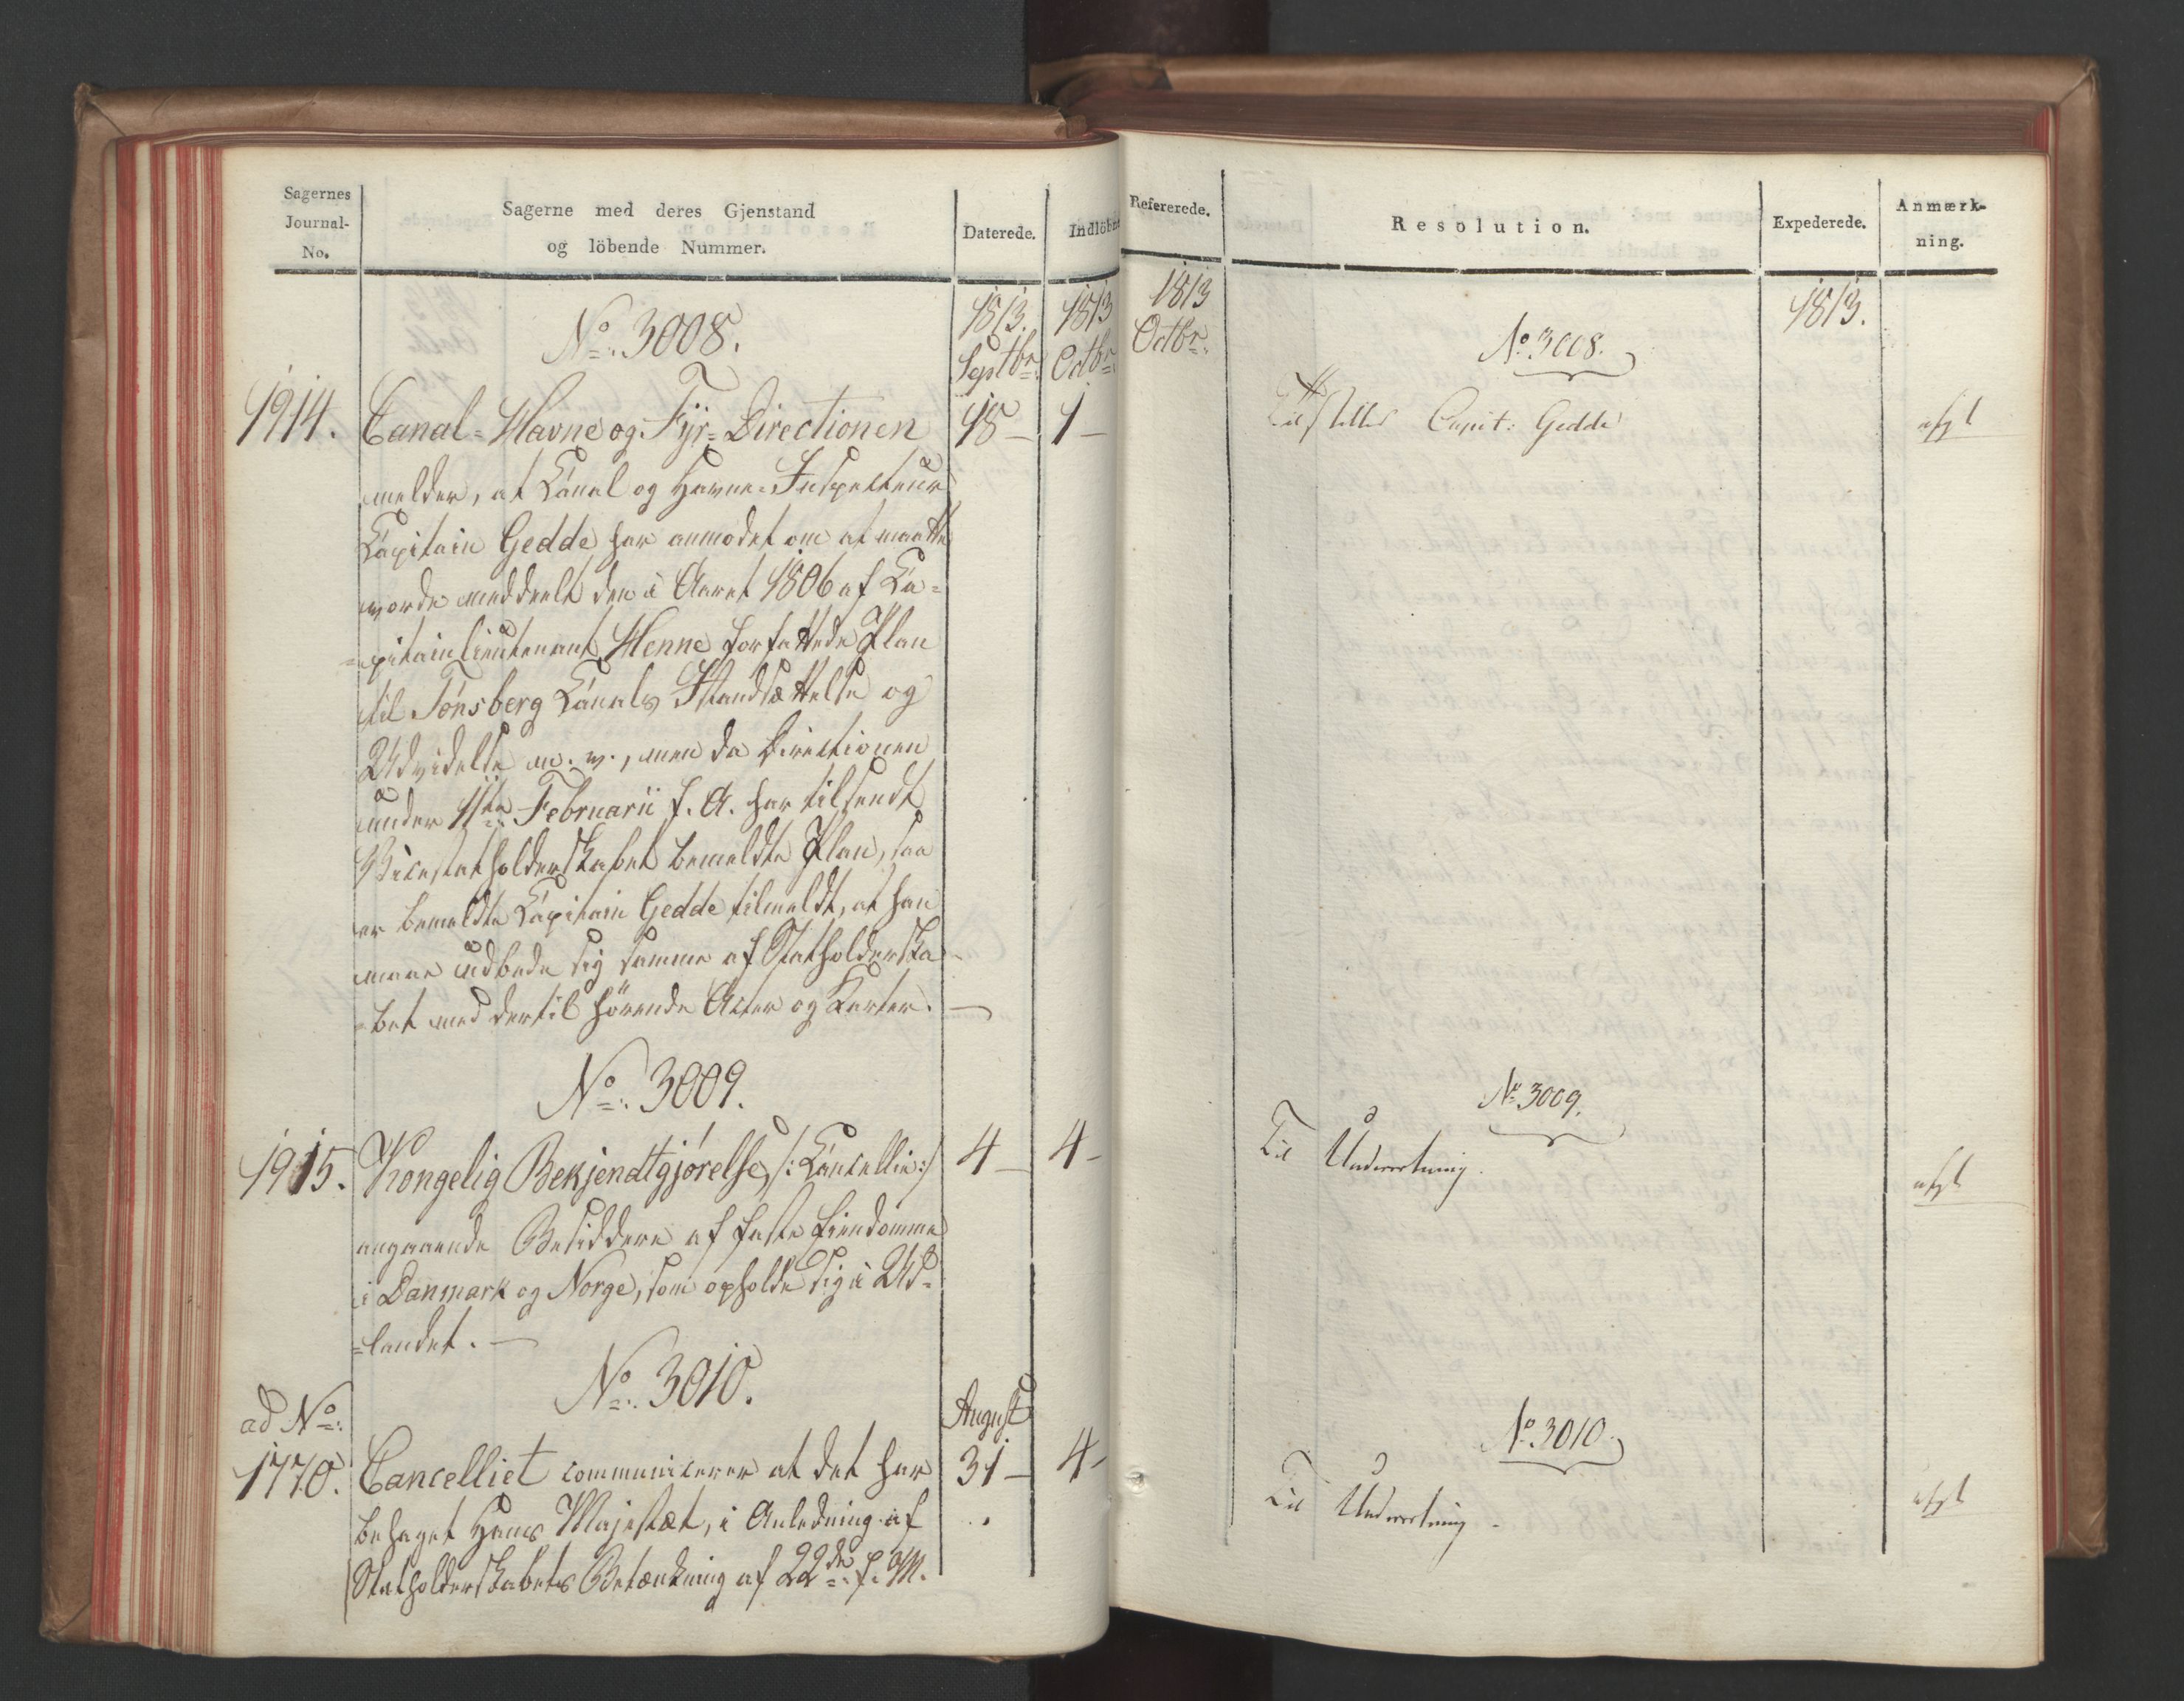 Sagernes
Journal-
No.
Sagerne med deres Gjenstand
og löbende Nummer.
Daterede.
Indlöbne
1813.
Septbr:
1813
Octbr:
No: 3008.
1914. Canal-Havne og Fyr-Directionen 18 – 1 –
melder, at Canal og Havne-Inspecteur
Capitain Gedde har anmodet om at maatte
vorde meddeelt den i Aaret 1806 af Ca-
-pitainlieutenant Henne forfattede Plan
til Tönsberg Canals Istandsættelse og
Udvidelse m. v., men da Directionen
under 11te Februarii f. A. har tilsendt
Vicestatholderskabet bemeldte Plan, saa
er bemeldte Capitain Gedde tilmeldt, at han
maae udbede sig samme af Statholderska-
-bet med dertil hörende Acter og Karter. —
No: 3009.
1915. Kongelig Bekjendtgjörelse /: Cancellie :/ 4 – 4 –
angaaende Besiddere af faste Eiendomme
i Danmark og Norge, som opholde sig i Ud-
-landet. —
No: 3010.
ad No: August
1770. Cancelliet communicerer at det har 31 – 4 –
behaget Hans Majestæt, i Anledning af
Statholderskabets Betænkning af 22de f. M.
Refererede.
Resolution.
Expederede.
Anmærk-
ning.
1813
Octbr:
1813.
No. 3008.
Tilstilles Capit: Gedde
No. 3009.
Til Underretning.
No. 3010.
Til Underretning.